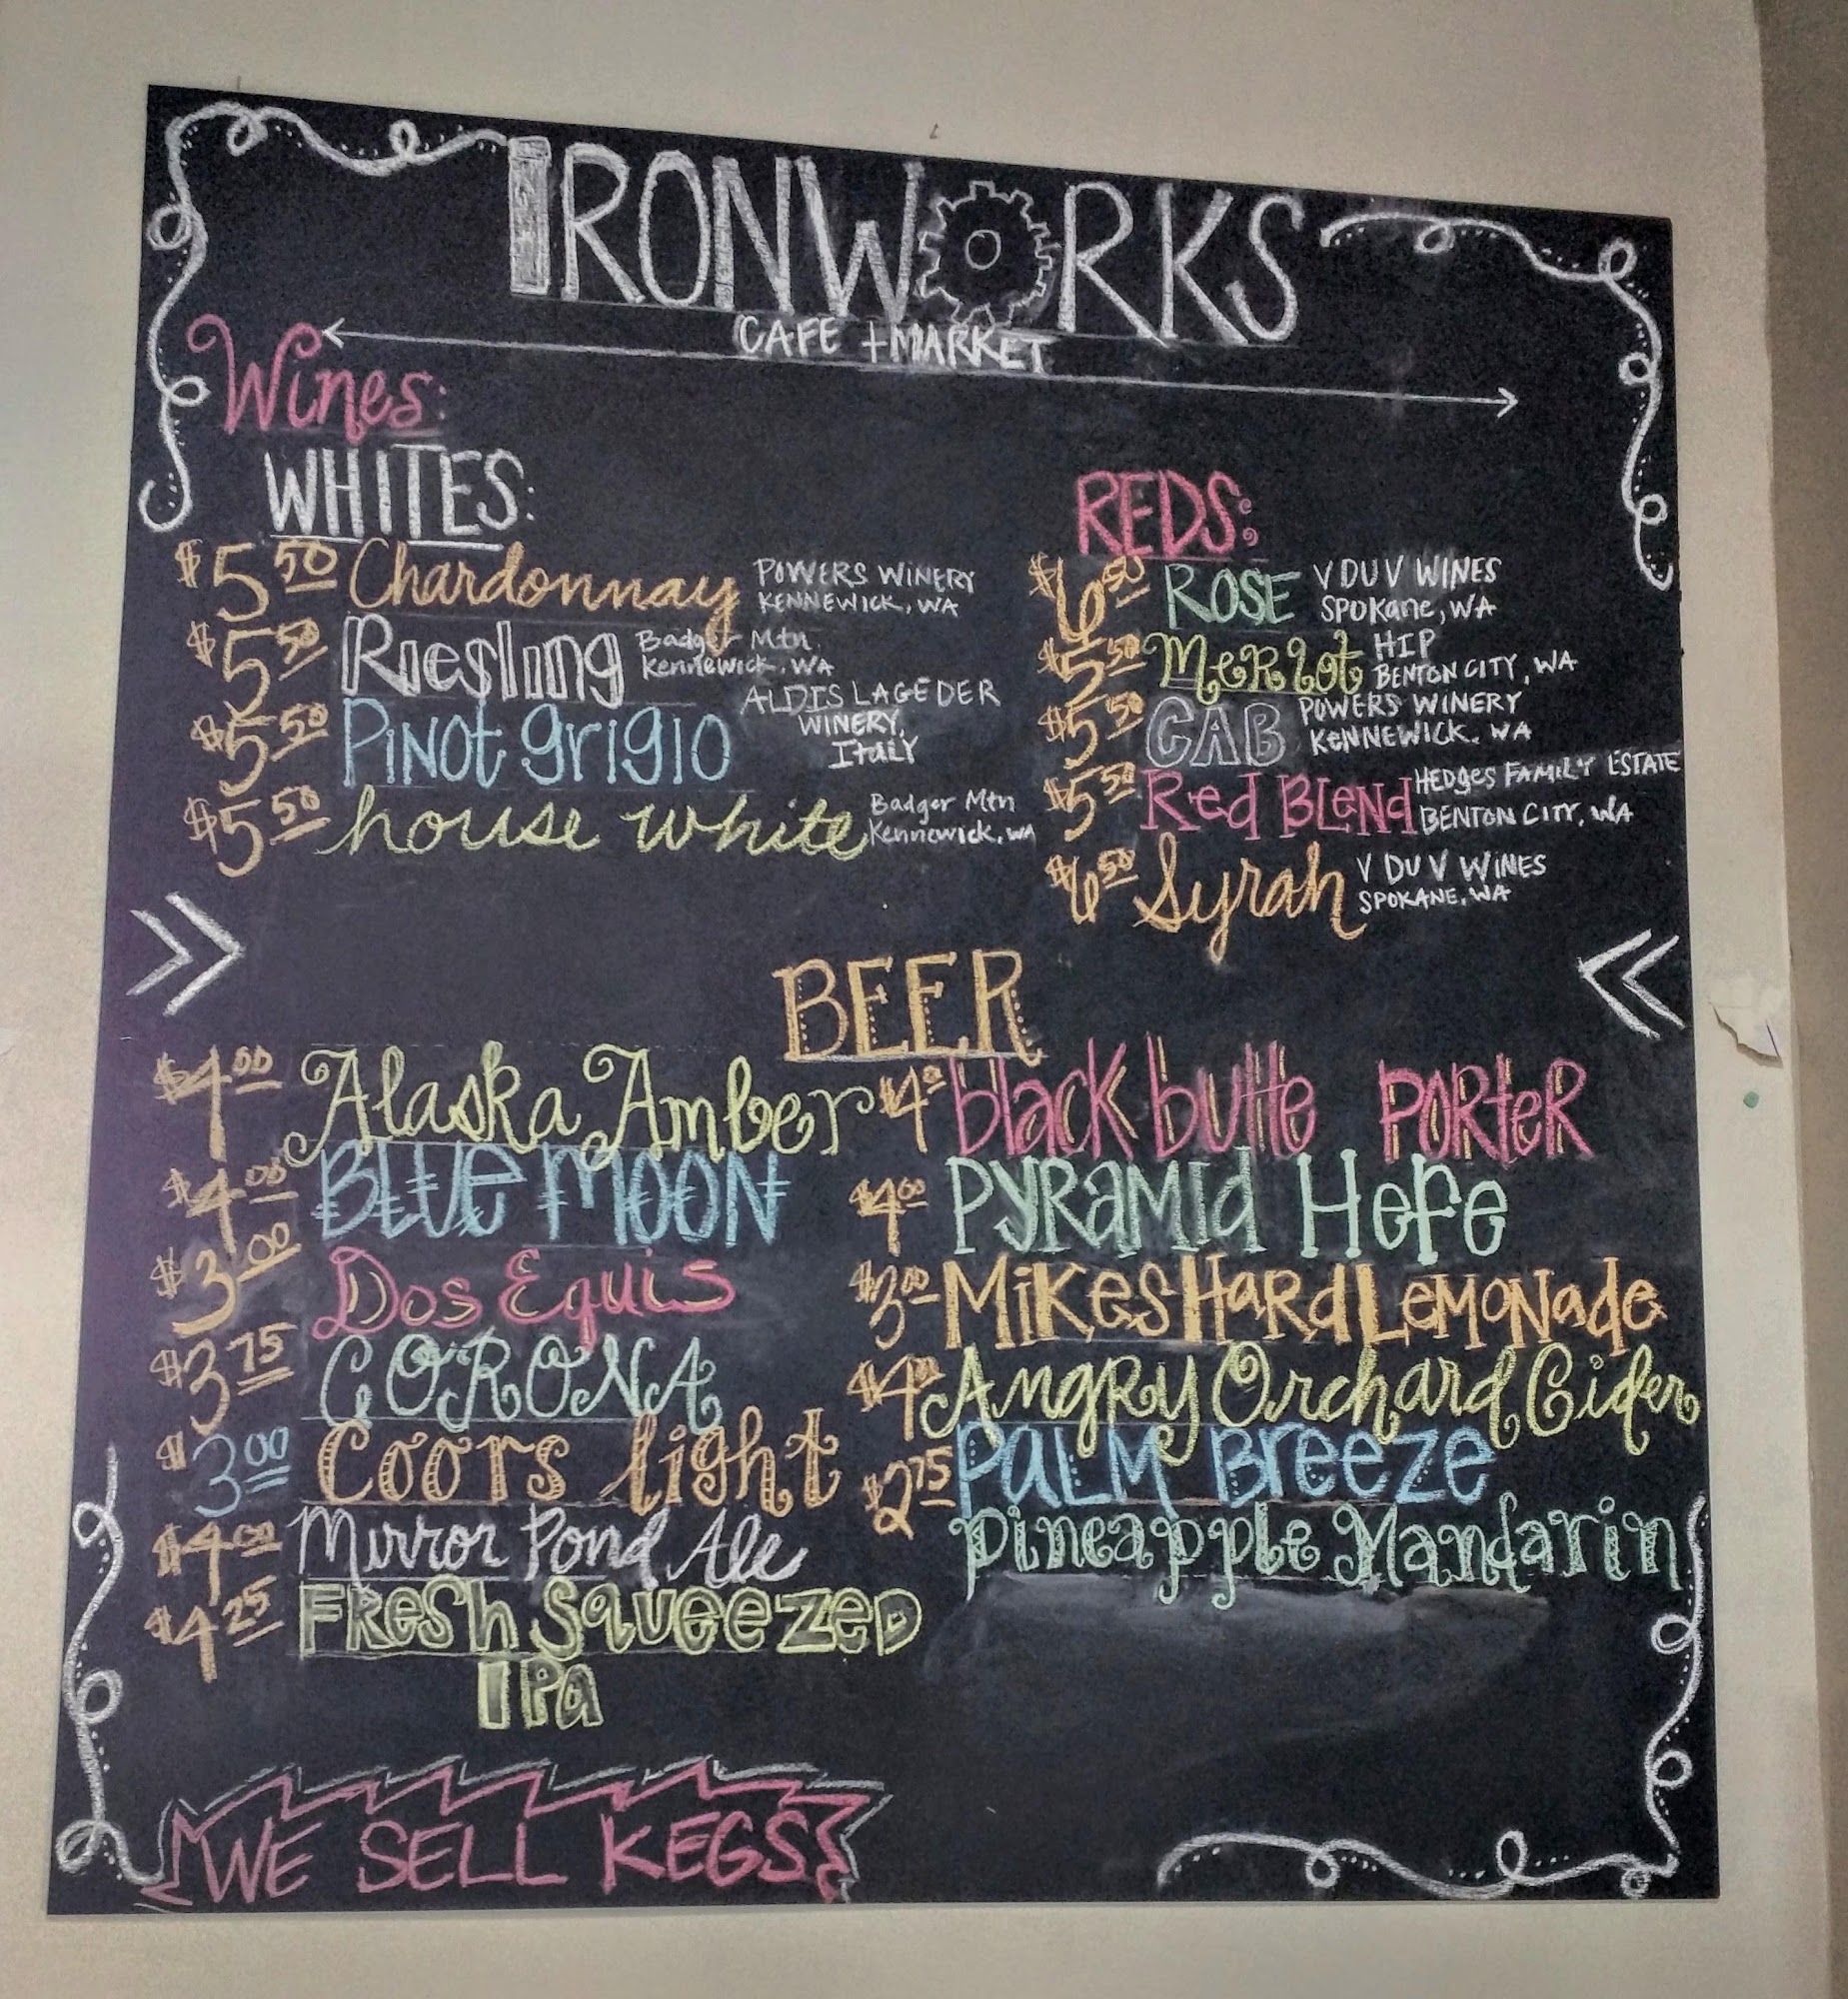 IRONWORKS
CAFE + MARKET
Wines:
WHITES:
$5.50 Chardonnay POWERS WINERY
KENNEWICK, WA
$5.50 Riesling Badger Mtn.
Kennewick, WA
$5.50 Pinot grigio ALOIS LAGEDER
WINERY,
ITALY
$5.50 house white Badger Mtn
Kennewick, WA
REDS:
$6.50 ROSE V DU V WINES
SPOKane, WA
$5.50 Merlot HIP
BENTON CITY, WA
$5.50 CAB POWERS WINERY
KENNEWICK, WA
$5.50 Red BLend HEDGES FAMILY ESTATE
BENTON CITY, WA
$6.50 Syrah V DU V WINES
SPOKANE, WA
BEER
$4.00 Alaska Amber
$4.00 BLUE MOON
$3.00 Dos Equis
$3.75 CORONA
$3.00 Coors light
$4.00 Mirror Pond Ale
$4.25 FResh SqUeeZeD
IPa
$4.00 black butte PORteR
$4.00 PYRAMid HeFe
$3.00 MiKes HaRd LeMONade
$4.00 Angry Orchard Cider
$2.75 PaLM Breeze
pineapple Mandarin
WE SELL KEGS